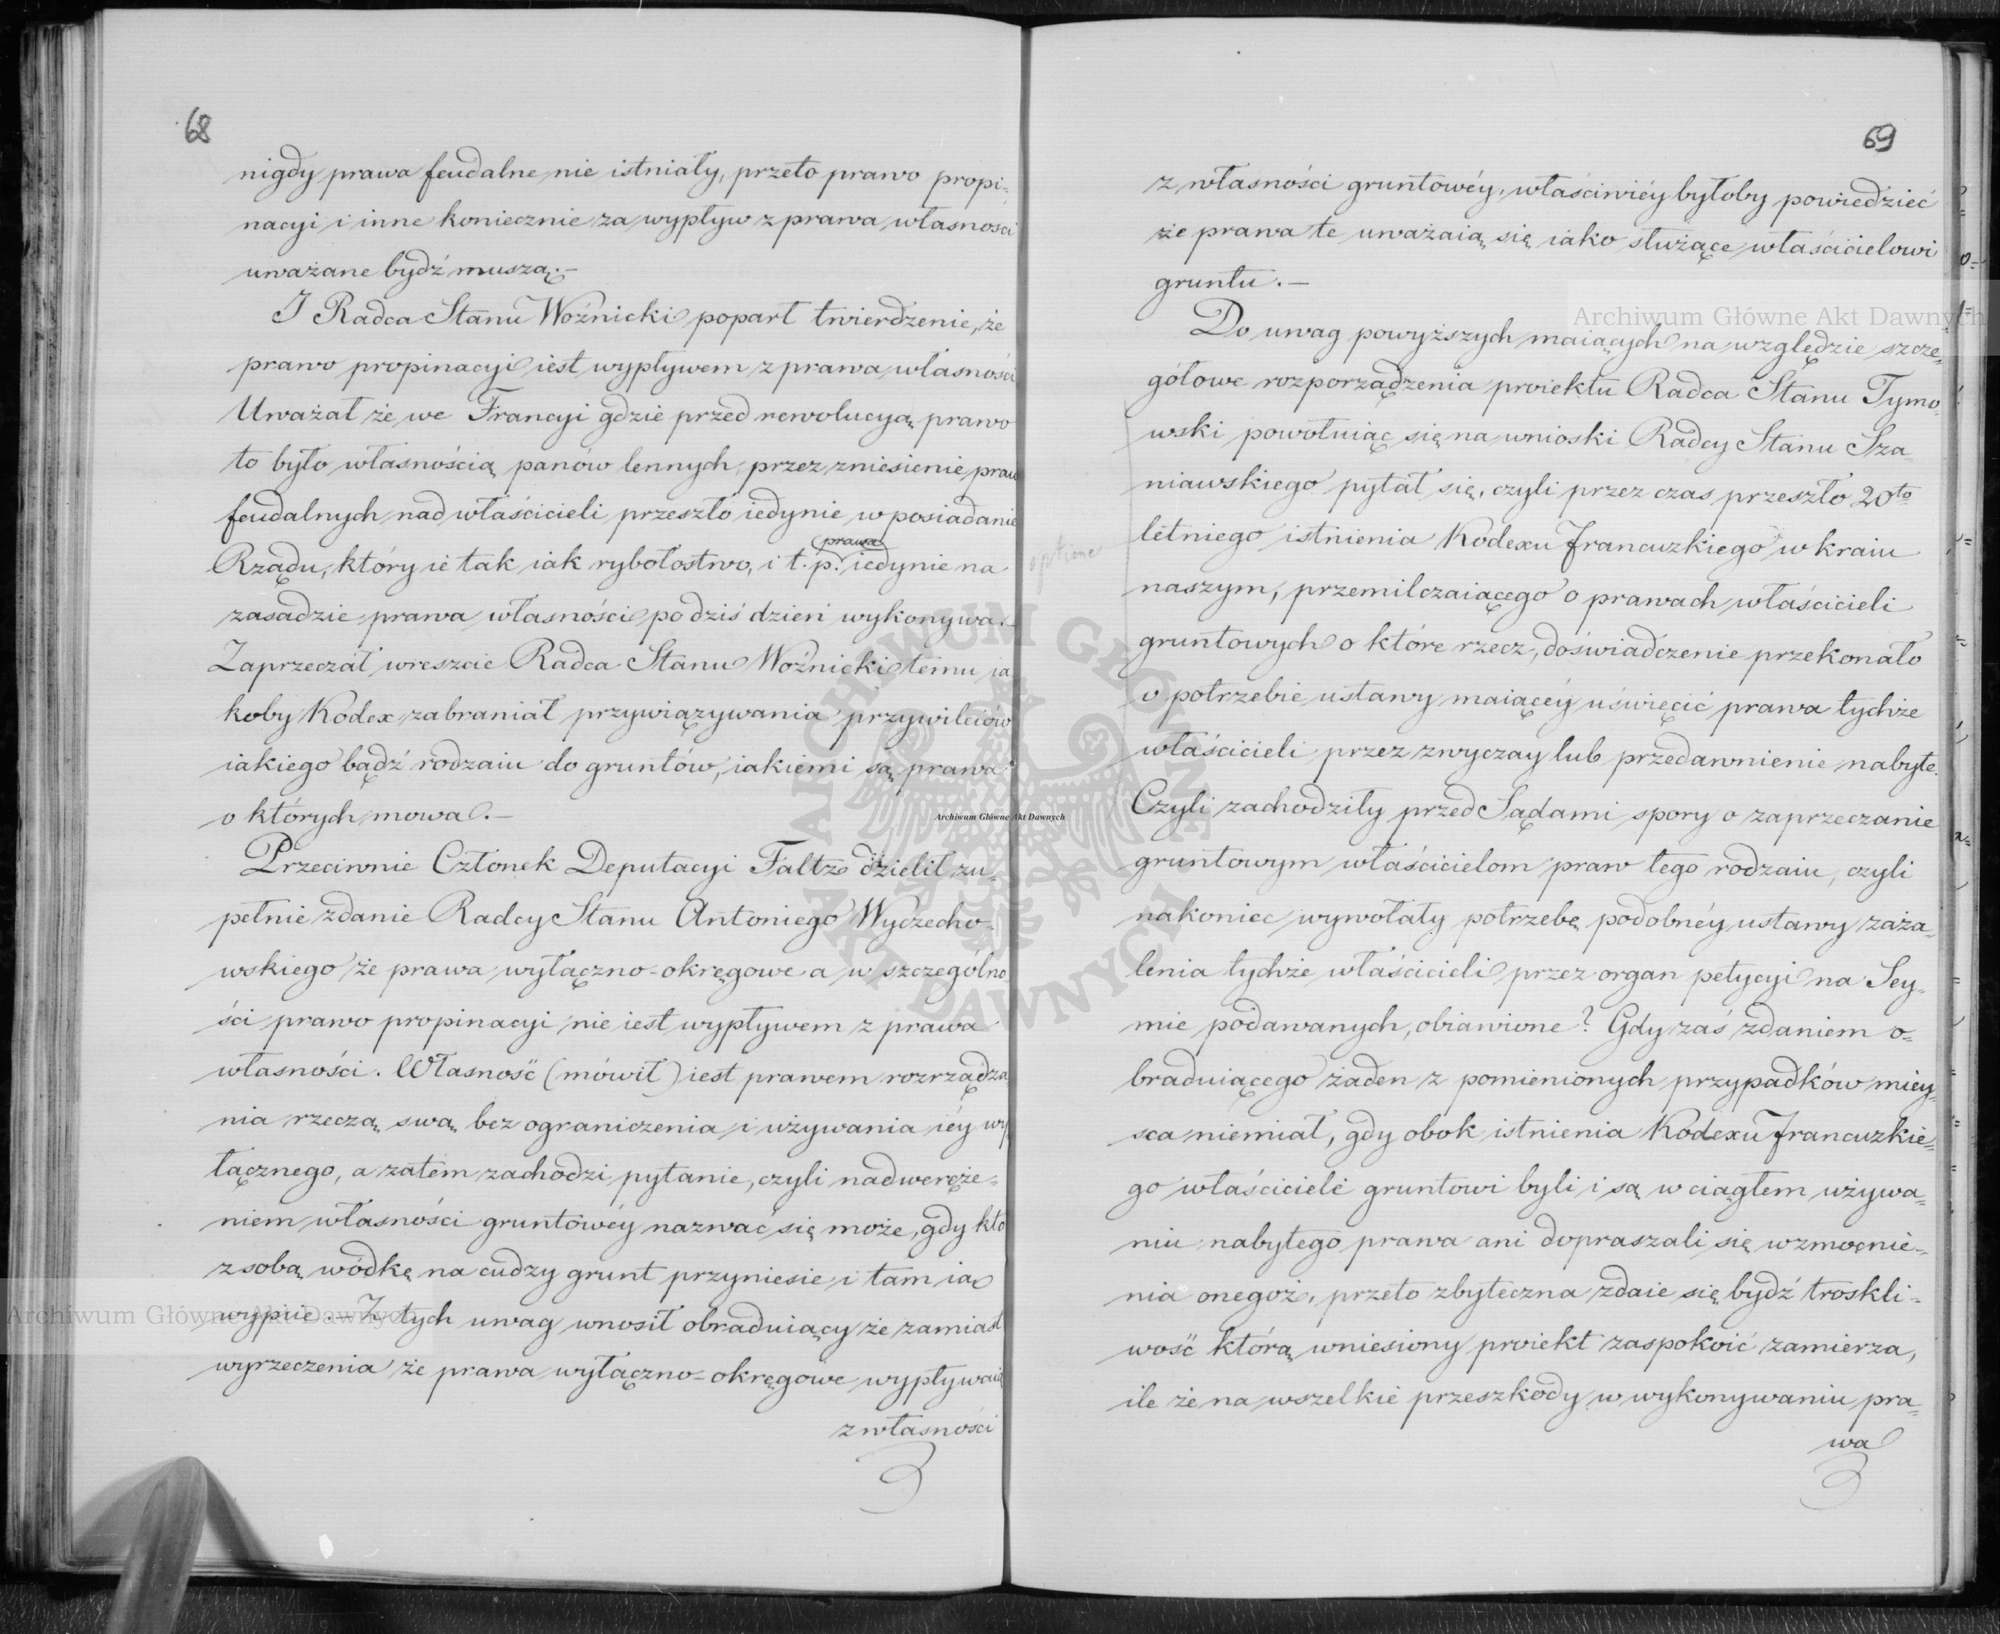 68
nigdy prawa feudalne nie istniały, przeto prawo propi-
nacyi i inne koniecznie za wypływ z prawa własności
uważane bydź muszą.—
I Radca Stanu Woźnicki poparł twierdzenie, że
prawo propinacyi iest wypływem z prawa własności
Uważał że we Francyi gdzie przed rewolucyą prawo
to było własnością panów lennych, przez zniesienie praw
feudalnych nad właścicieli przeszło iedynie w posiadanie
prawa
Rządu, który ie tak iak rybołostwo, i t. p. iedynie na
zasadzie prawa własności po dziś dzień wykonywa.—
Zaprzeczał wreszcie Radca Stanu Woźnicki temu ia
koby Kodex zabraniał przywiązywania przywileiów
iakiego bądź rodzaiu do gruntów, iakiemi są prawa
o których mowa.—
Przeciwnie Członek Deputacyi Faltz dzielił zu-
pełnie zdanie Radcy Stanu Antoniego Wyczecho-
wskiego że prawa wyłączno-okręgowe a w szczególno
ści prawo propinacyi nie iest wypływem z prawa
własności. Własność (mówił) iest prawem rozrządza
nia rzeczą swą bez ograniczenia i używania iéy wy
łącznego, a zatem zachodzi pytanie, czyli nadweręże-
niem własności gruntowéy nazwać się może, gdy kto
z sobą wódkę na cudzy grunt przyniesie i tam ią
wypiie.— Z tych uwag wnosił obraduiący że zamiast
wyrzeczenia że prawa wyłączno-okręgowe wypływaią
z własności
69
z własności gruntowéy, właściwiéy byłoby powiedzieć
że prawa te uważaią się iako służące właścicielowi
gruntu.—
Do uwag powyższych maiących na względzie szcze-
gółowe rozporządzenia proiektu Radca Stanu Tymo-
wski powołuiąc się na wnioski Radcy Stanu Sza-
niawskiego pytał się, czyli przez czas przeszło 20to
letniego istnienia Kodexu francuzkiego w kraiu
naszym, przemilczaiącego o prawach właścicieli
gruntowych o które rzecz, doświadczenie przekonało
o potrzebie ustawy maiącéy uświęcić prawa tychże
właścicieli przez zwyczay lub przedawnienie nabyte.
Czyli zachodziły przed Sądami spory o zaprzeczanie
gruntowym właścicielom praw tego rodzaiu, czyli
nakoniec wywołały potrzebę podobnéy ustawy zaża-
lenia tychże właścicieli przez organ petycyi na Sey-
mie podawanych, obiawione? Gdy zaś zdaniem o-
braduiącego żaden z pomienionych przypadków miey-
sca niemiał, gdy obok istnienia Kodexu francuzkie-
go właściciele gruntowi byli i są w ciągłem używa-
niu nabytego prawa ani dopraszali się wzmocnie-
nia onegoż, przeto zbyteczna zdaie się bydź troskli-
wość którą wniesiony proiekt zaspokoić zamierza,
ile że na wszelkie przeszkody w wykonywaniu pra-
wa
Archiwum Główne Akt Dawnych
Archiwum Główne Akt Dawnych
Archiwum Główne Akt Dawnych
ARCHIWUM GŁÓWNE AKT DAWNYCH